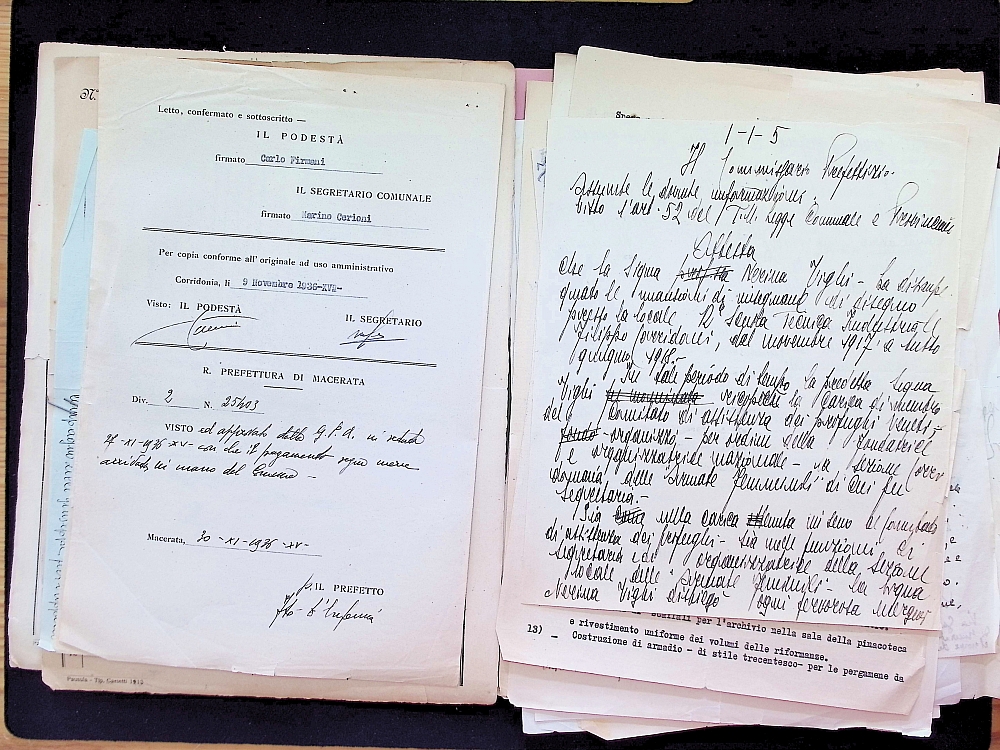 Letto, confermato e sottoscritto —
IL PODESTÀ
firmato Carlo Firmani
IL SEGRETARIO COMUNALE
firmato Marino Cerioni
Per copia conforme all'originale ad uso amministrativo
Corridonia, li 9 Novembre 1936-XVI-
Visto: IL PODESTÀ
IL SEGRETARIO
R. PREFETTURA DI MACERATA
Div. 2 N. 25403
VISTO ed approvato dalla G.P.A. in seduta
27-XI-1936 XV- con che il pagamento segua
in mano del
Macerata, 30-XI-1936-XV-
p. IL PREFETTO
Pausula - Tip. Crocetti 1915
N.
Spese
1-1-5
Il Commissario Prefettizio.
Assunte le dovute informazioni,
Visto l'art. 52 del T.U. Legge Comunale e Provinciale
Attesta
che la Signa Nerina Vighi - ha disimpe-
gnato le mansioni di insegnante di disegno
presso la locale Scuola Tecnica Industriale
Filippo Corridoni, dal novembre 1917 a tutto
giugno
In tale periodo di tempo la predetta Signa
Vighi la carica di membro
del Comitato di assistenza dei profughi veneti -
organizzò - per ordine della fondatrice
e organizzatrice nazionale - la sezione
delle "Armate femminili" di cui fu
segretaria. -
Sia nella carica tenuta in seno al Comitato
di assistenza dei profughi - sia nelle funzioni di
segretaria e di organizzatrice della Sezione
locale delle "Armate femminili" - la Signa
Nerina Vighi dispiegò ogni fervorosa
per l'archivio nella sala della pinacoteca
e rivestimento uniforme dei volumi delle riformanze.
13) - Costruzione di armadio - di stile trecentesco- per le pergamene da